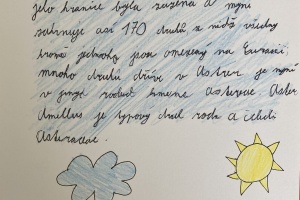 jeho hranice byla zúžena a nyní
zahrnuje asi 170 druhů, z nichž všechny
kromě jednoho jsou omezeny na Eurasii,
mnoho druhů dříve v Aster je nyní
v jiných rodech kmene Astereae. Aster
Amellus je typový druh rodu a čeledi
Asteraceae.